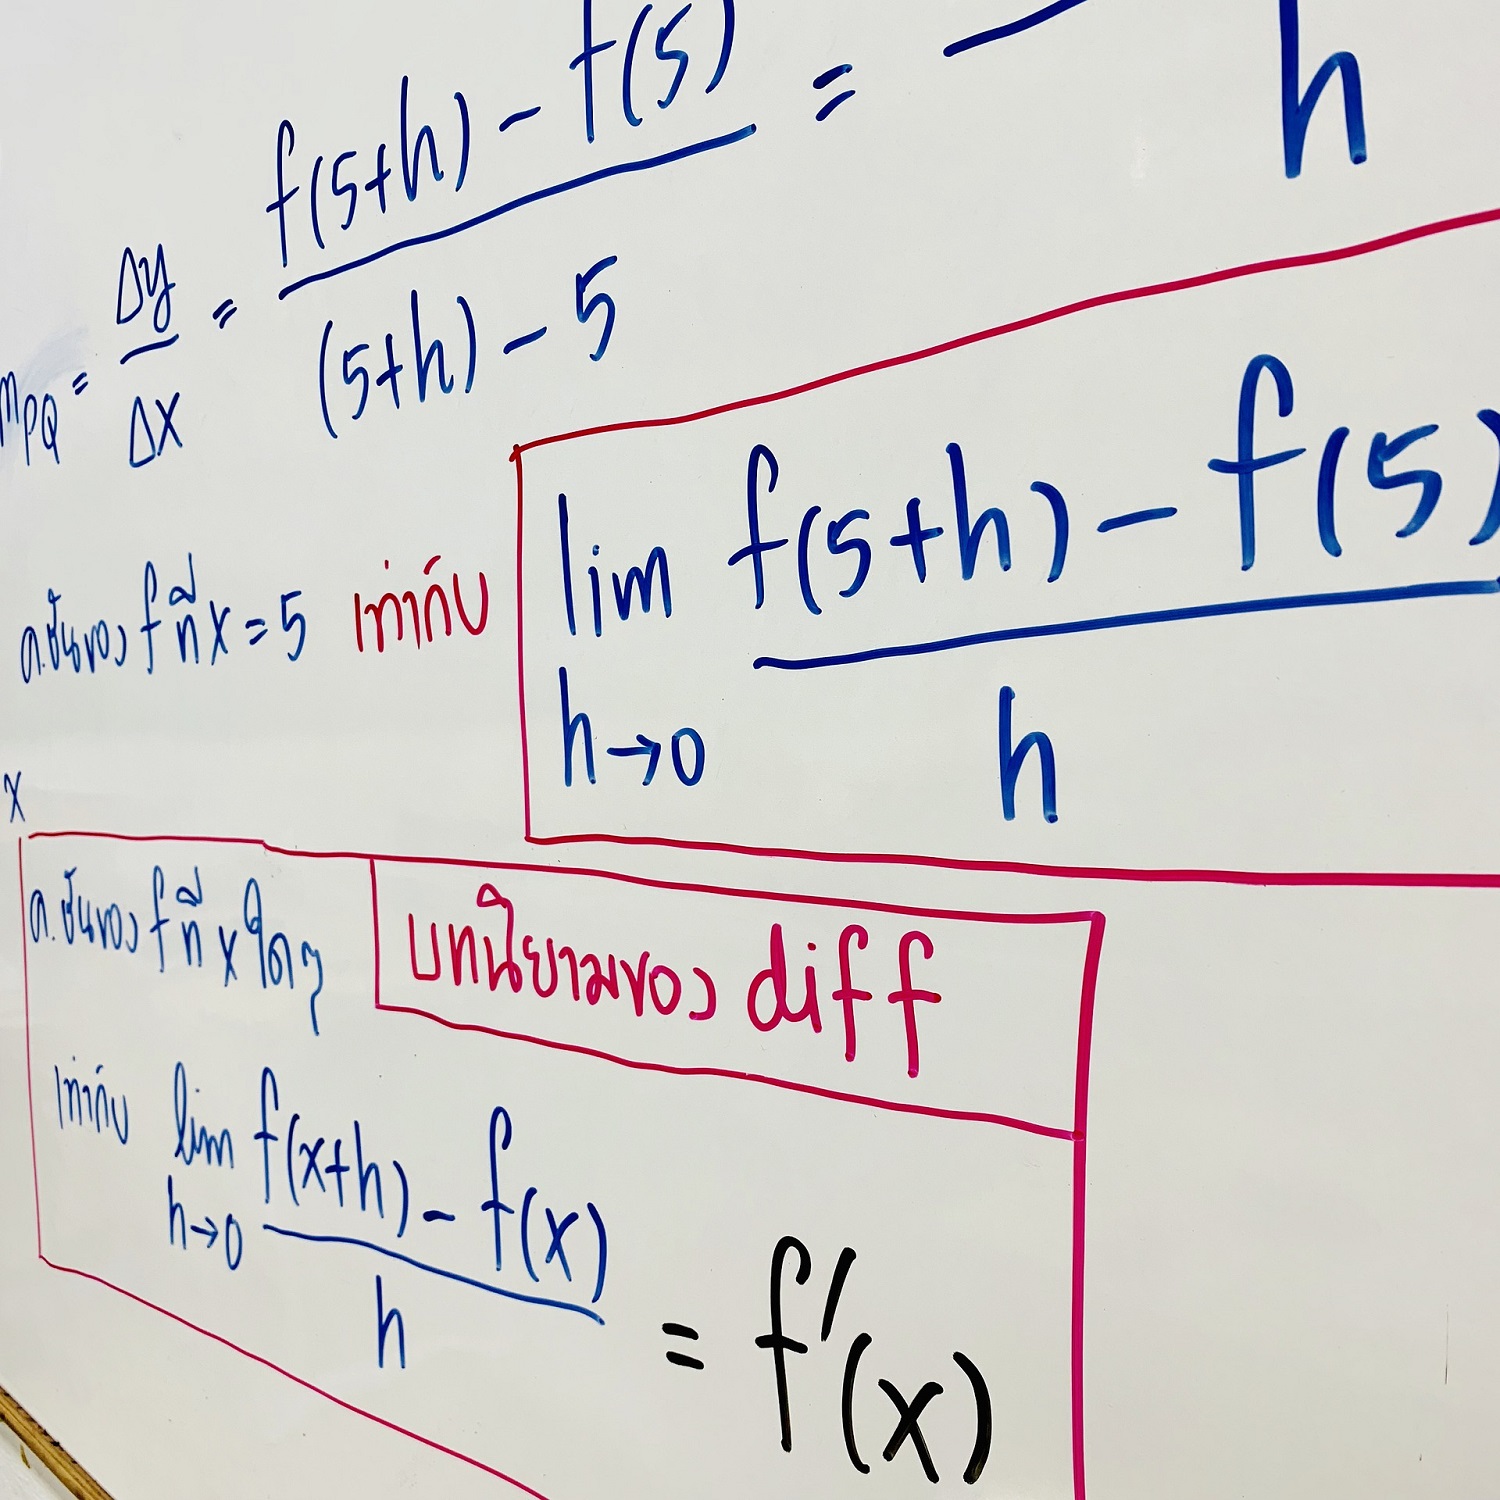 m_PQ = Δy/Δx = (f(5+h) - f(5))/((5+h) - 5) = ―/h
ค.ชันของ f ที่ x = 5 เท่ากับ lim h→0 (f(5+h) - f(5))/h
x
ค.ชันของ f ที่ x ใดๆ
บทนิยามของ diff
เท่ากับ lim h→0 (f(x+h) - f(x))/h = f'(x)